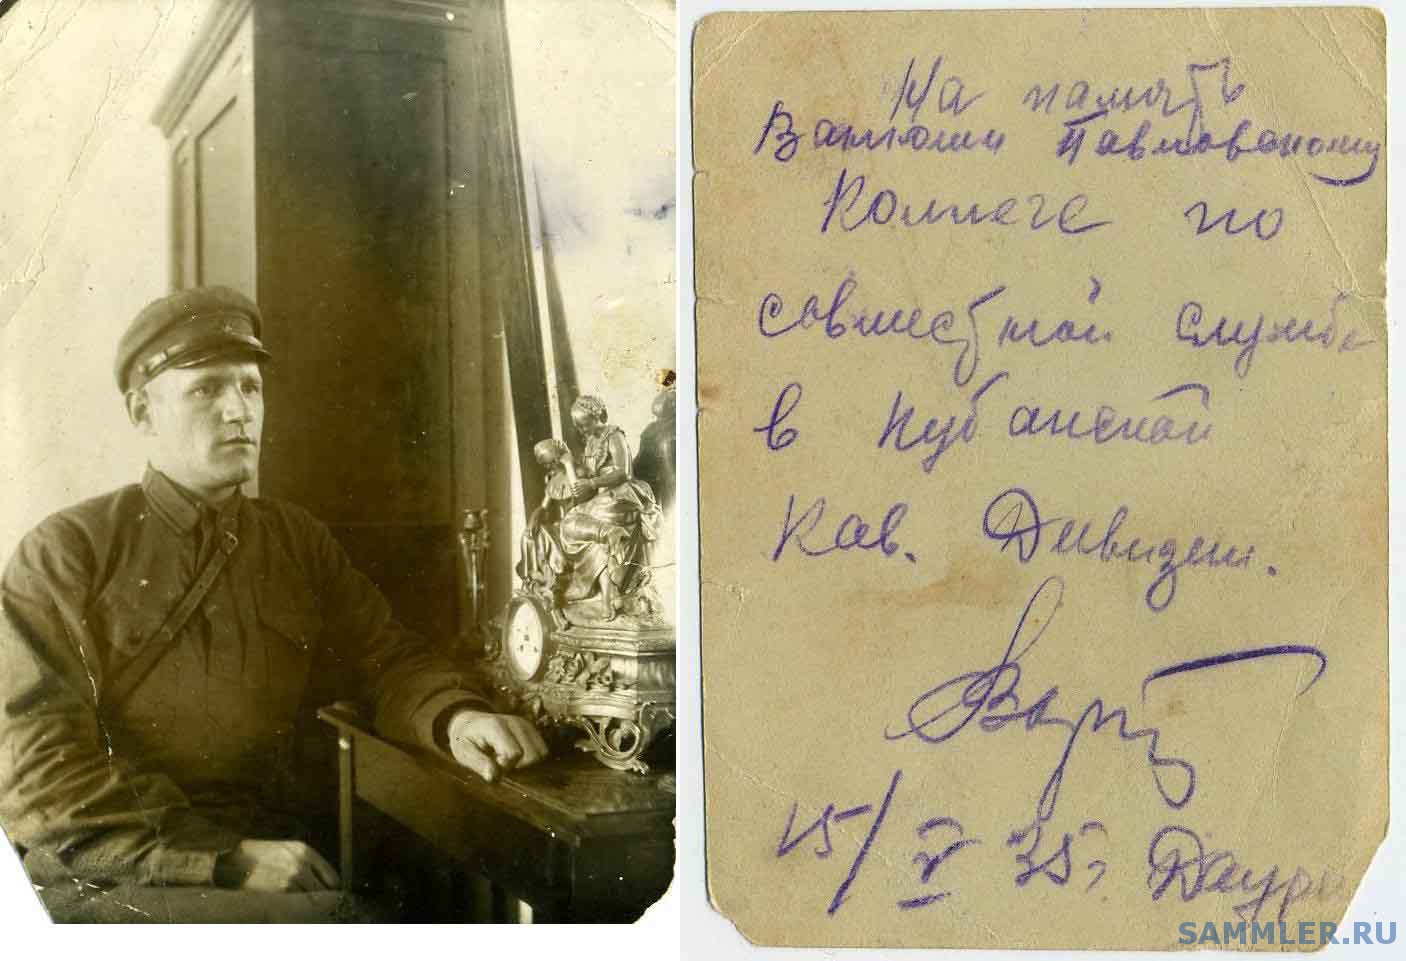 На память
Ванюши Павловскому
Коллеге по
совместной службе
в Кубанской
Кав. Дивизии.
15/V 35г Даурия
SAMMLER.RU